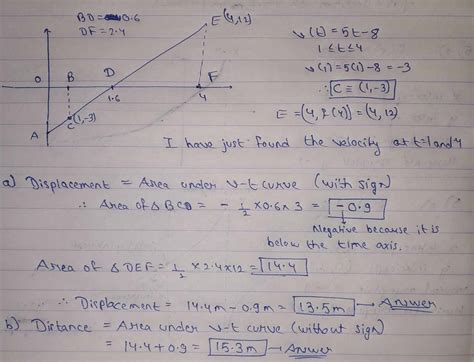 BD = 0.6
DF = 2.4
E(4,12)
v(t) = 5t-8
1 ≤ t ≤ 4
v(1) = 5(1)-8 = -3
∴ C ≡ (1,-3)
E = (4, v(4)) = (4, 12)
O B D F
1.6 4
C(1,-3)
A
I have just found the velocity at t=1 and 4
a) Displacement = Area under v-t curve (with sign)
∴ Area of Δ BCD = - 1/2 × 0.6 × 3 = -0.9
Negative because it is
below the time axis.
Area of Δ DEF = 1/2 × 2.4 × 12 = 14.4
∴ Displacement = 14.4m - 0.9m = 13.5m → Answer
b) Distance = Area under v-t curve (without sign)
= 14.4 + 0.9 = 15.3m → Answer